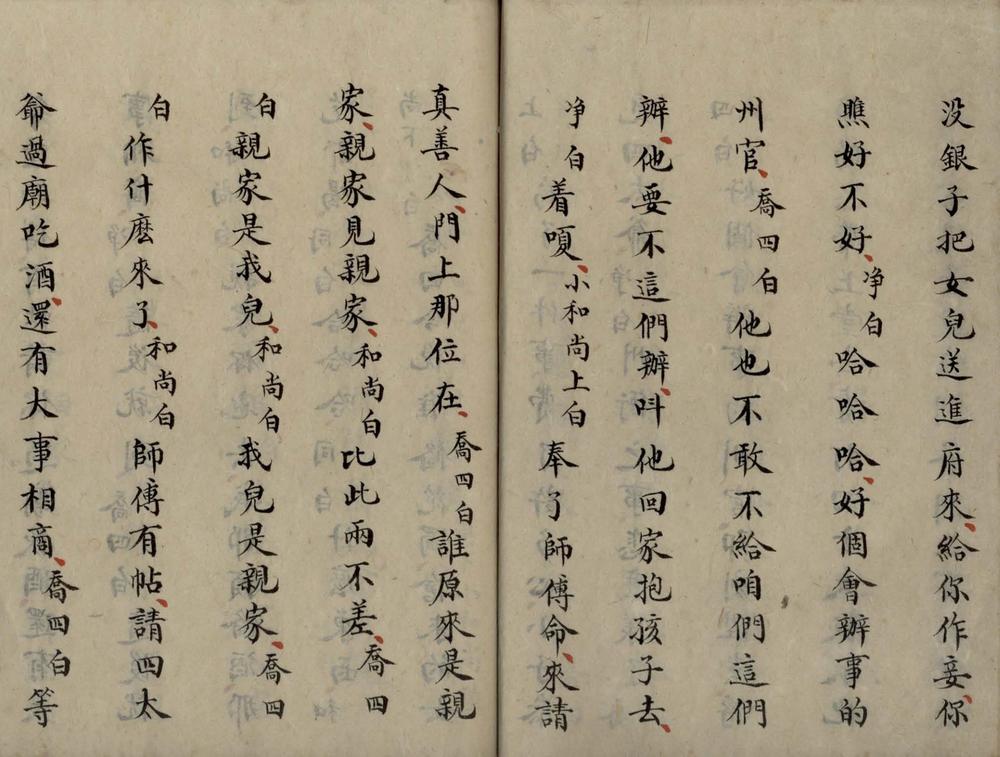 没銀子把女兒送進府來、給你作妾、你
瞧好不好、净白哈哈哈、好個會辦事的
州官、喬四白他也不敢不給咱們這們
辦、他要不這們辦、呌他回家抱孩子去、
净白着嗄、小和尚上白奉了師傅命、來請
真善人、門上那位在、喬四白誰原來是親
家、親家見親家、和尚白比此兩不差、喬四
白親家是我兒、和尚白我兒是親家、喬四
白作什麽來了、和尚白師傅有帖、請四太
爺過廟吃酒、還有大事相商、喬四白等